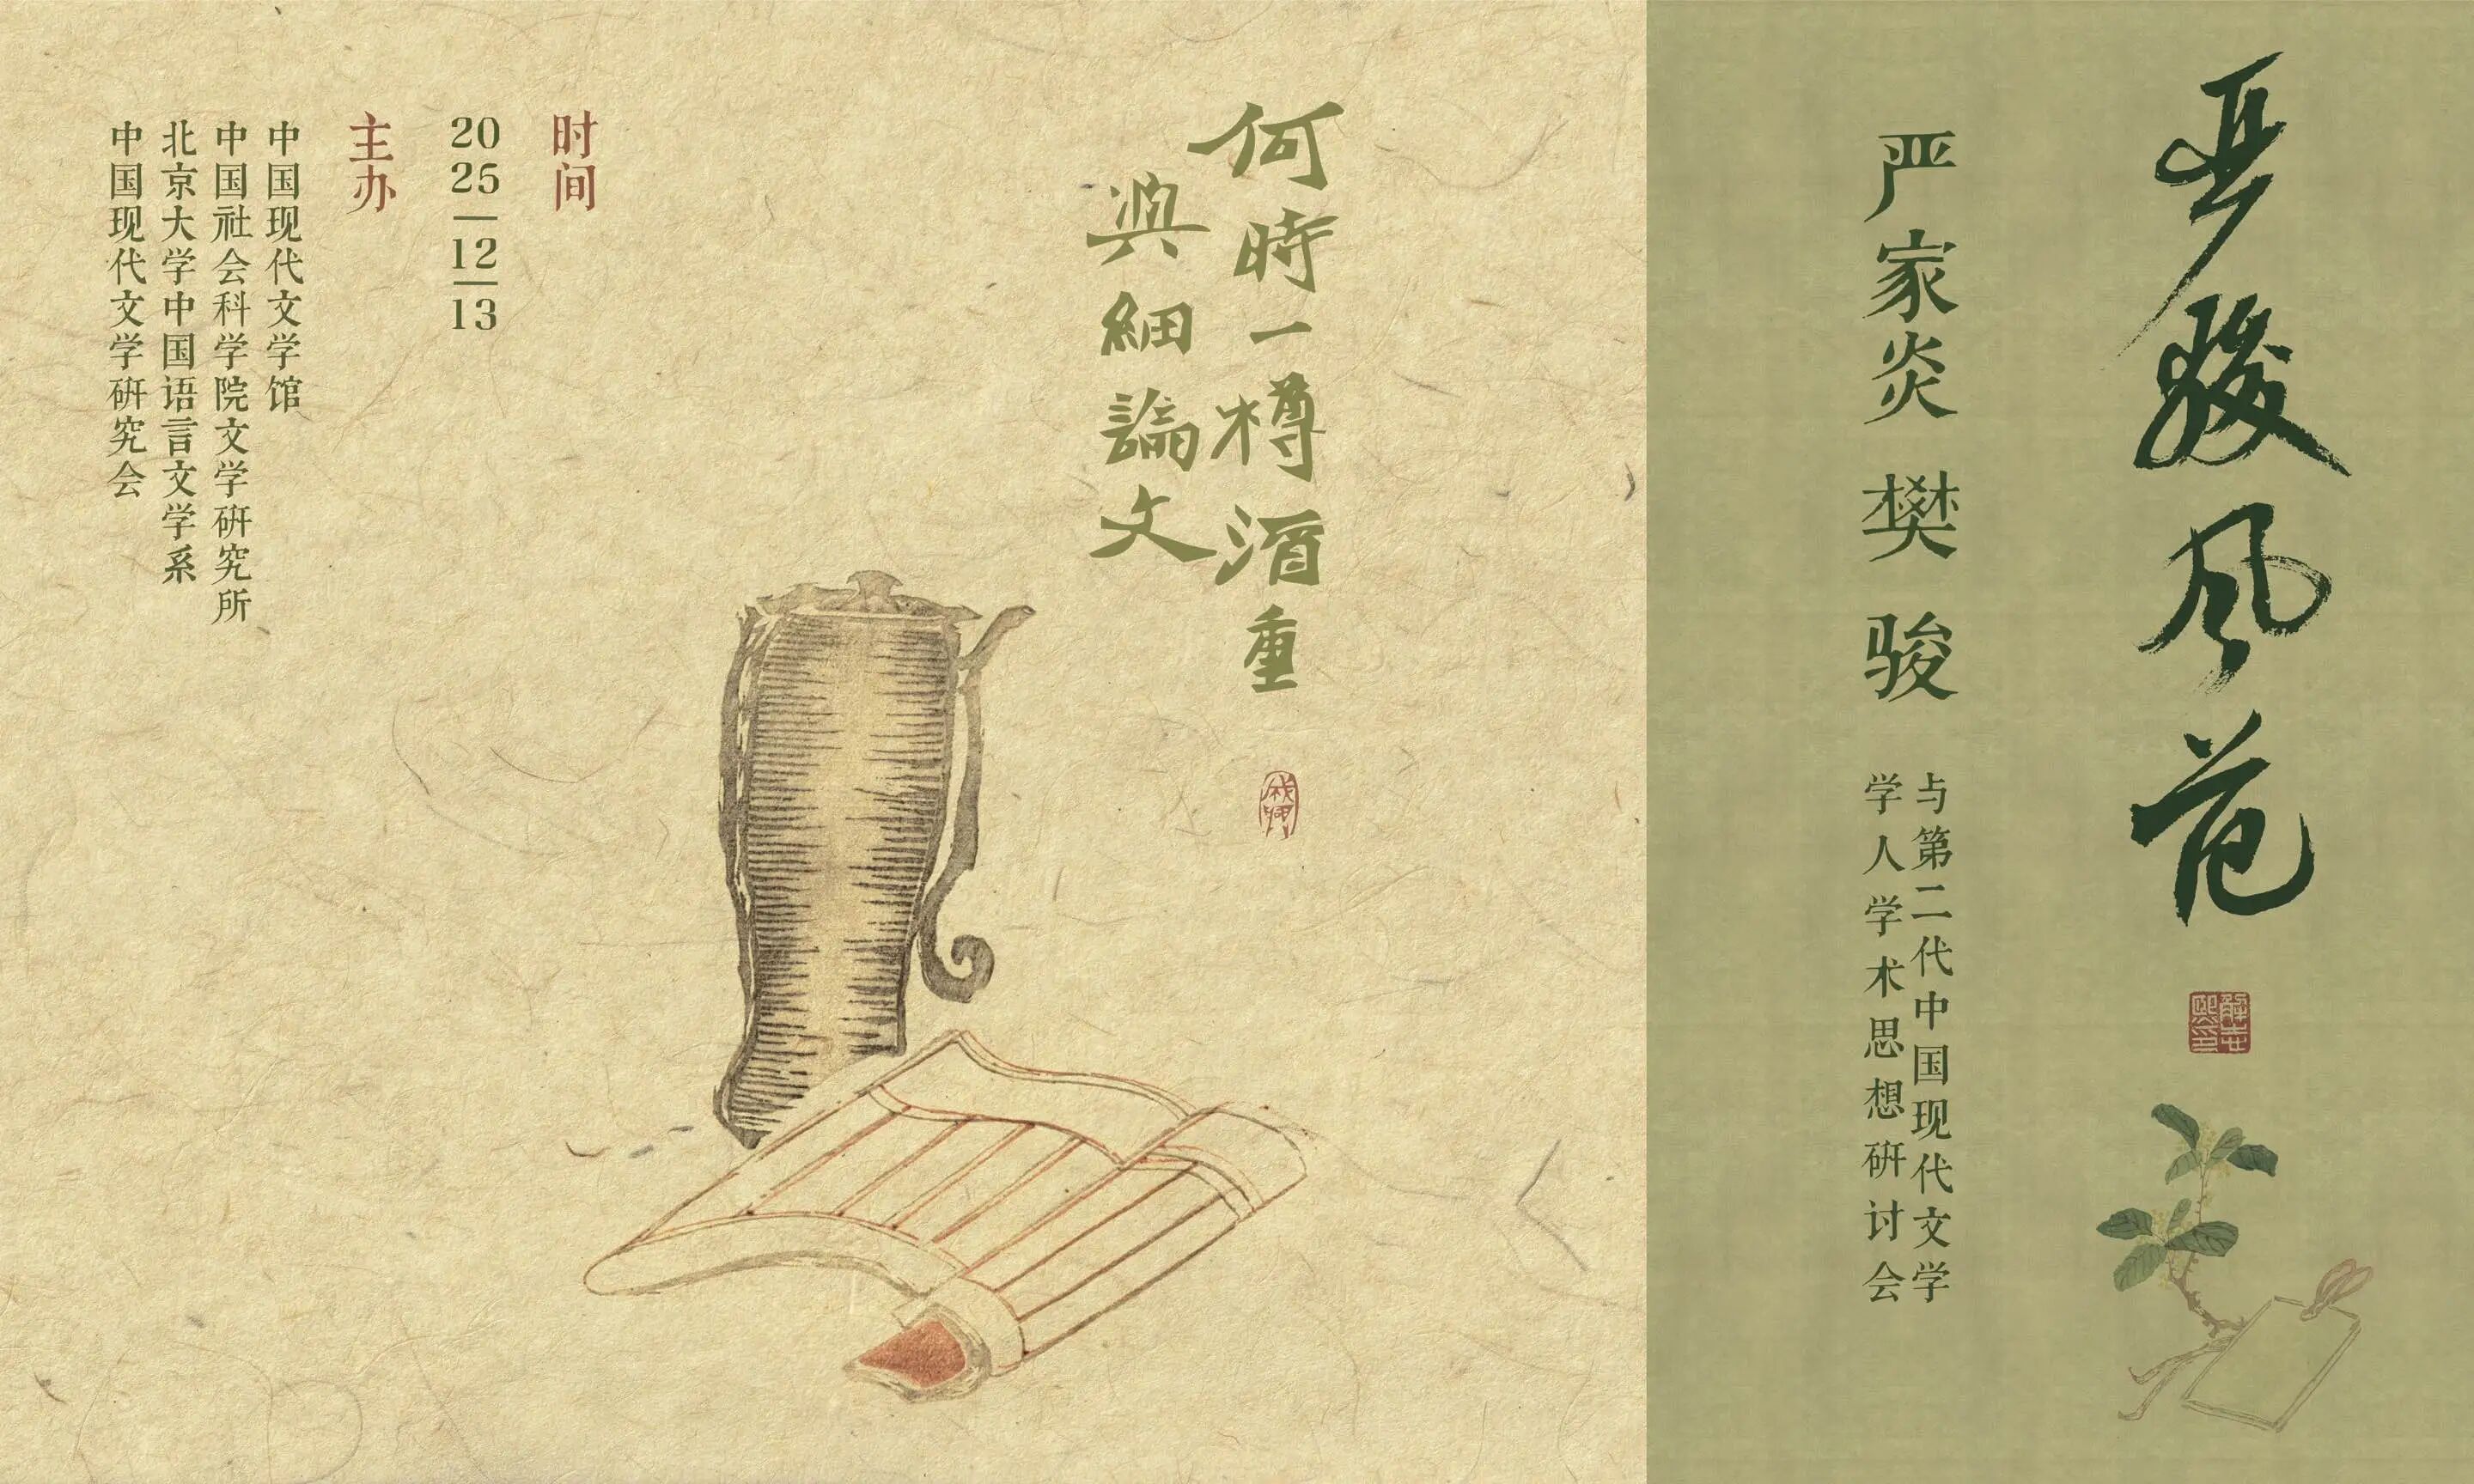 严骏风范
解志熙印
严家炎 樊骏
与第二代中国现代文学
学人学术思想研讨会
何時一樽酒重
與細論文
时间
2025—12—13
主办
中国现代文学馆
中国社会科学院文学研究所
北京大学中国语言文学系
中国现代文学研究会